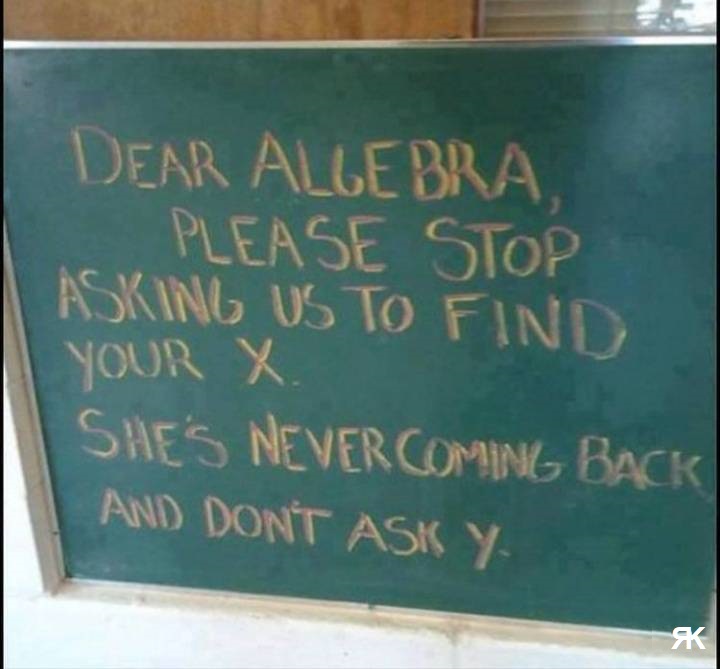 DEAR ALGEBRA,
PLEASE STOP
ASKING US TO FIND
YOUR X.
SHE'S NEVER COMING BACK
AND DON'T ASK Y.
ЯK